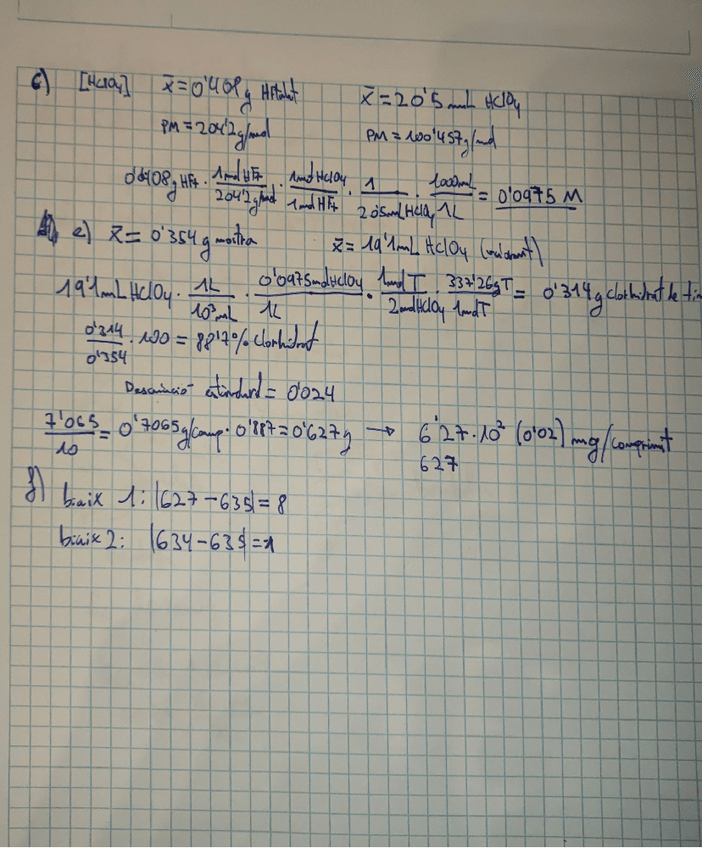 c) [HClO4] x̄ = 0'408g HFtalat x̄ = 20'5 mL HClO4
PM = 204'2 g/mol PM = 100'457 g/mol
0'408g HFt · 1mol HFt / 204'2 g/mol · 1mol HClO4 / 1mol HFt · 1 / 20'5mL HClO4 · 1000mL / 1L = 0'0975 M
e) x̄ = 0'354 g mostra x̄ = 19'1mL HClO4
19'1mL HClO4 · 1L / 10³mL · 0'0975mol HClO4 / 1L · 1mol T / 2mol HClO4 · 337'26g T / 1mol T = 0'314g clorhidrat de
0'314 / 0'354 · 100 = 88'7% clorhidrat
Desviació estàndard = 0'024
7'065 / 10 = 0'7065g/comp · 0'887 = 0'627g → 6'27·10² (0'02) mg/comprimit
627
f) biaix 1: |627 - 635| = 8
biaix 2: |634 - 635| = 1